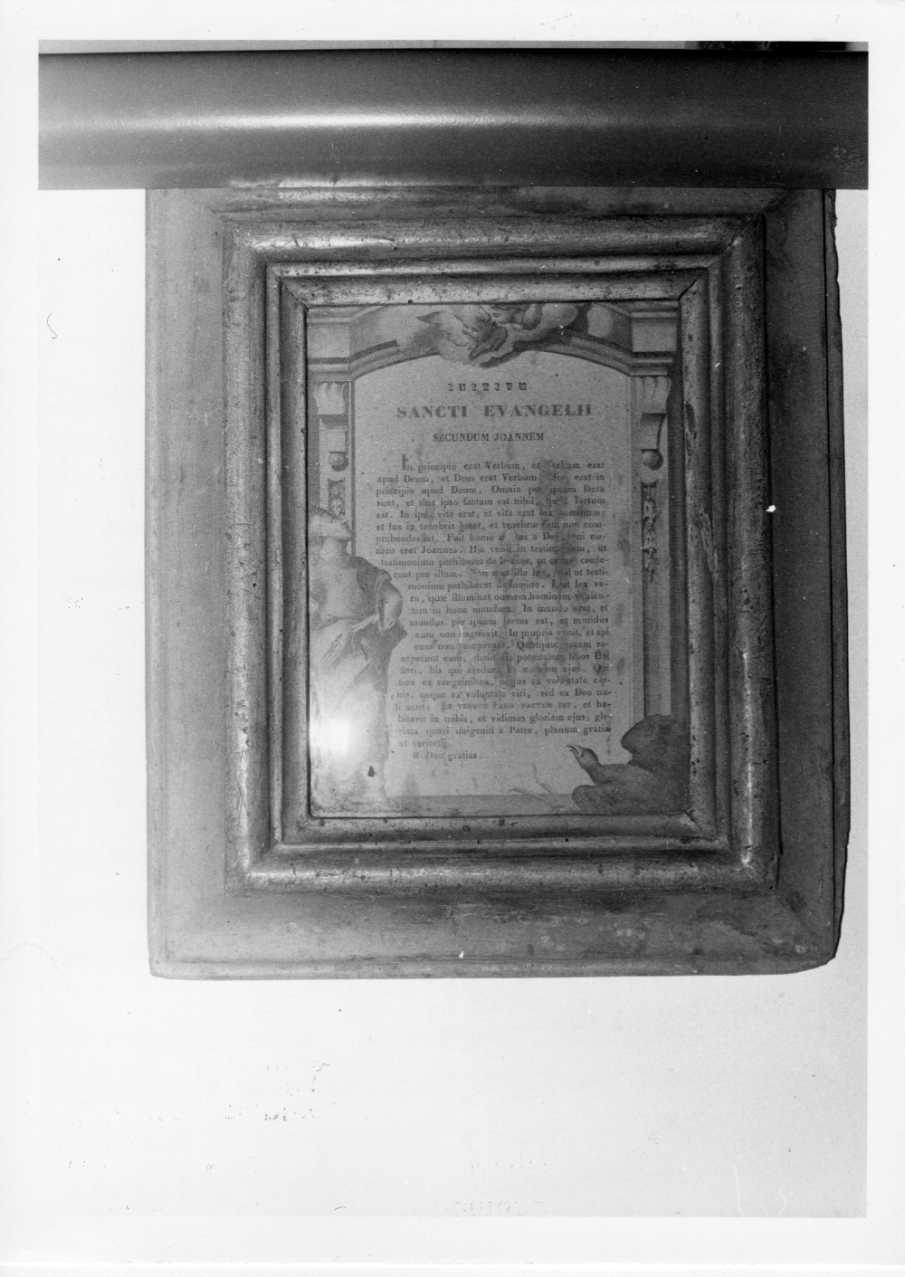 INITIUM
SANCTI EVANGELII
SECUNDUM JOANNEM
In principio erat Verbum, et Verbum erat
apud Deum, et Deus erat Verbum. Hoc erat in
principio apud Deum. Omnia per ipsum facta
sunt, et sine ipso factum est nihil, quod factum
est. In ipso vita erat, et vita erat lux hominum,
et lux in tenebris lucet, et tenebræ eam non com-
prehenderunt. Fuit homo missus a Deo, cui no-
men erat Joannes. Hic venit in testimonium, ut
testimonium perhiberet de lumine, ut omnes crede-
rent per illum. Non erat ille lux, sed ut testi-
monium perhiberet de lumine. Erat lux ve-
ra, quæ illuminat omnem hominem venien-
tem in hunc mundum. In mundo erat, et
mundus per ipsum factus est, et mundus
eum non cognovit. In propria venit, et sui
eum non receperunt. Quotquot autem re-
ceperunt eum, dedit eis potestatem filios Dei
fieri, his qui credunt in nomine ejus. Qui
non ex sanguinibus, neque ex voluntate car-
nis, neque ex voluntate viri, sed ex Deo na-
ti sunt. Et verbum caro factum est, et ha-
bitavit in nobis, et vidimus gloriam ejus, glo-
riam quasi unigeniti a Patre, plenum gratiæ
et veritatis.
R. Deo gratias.